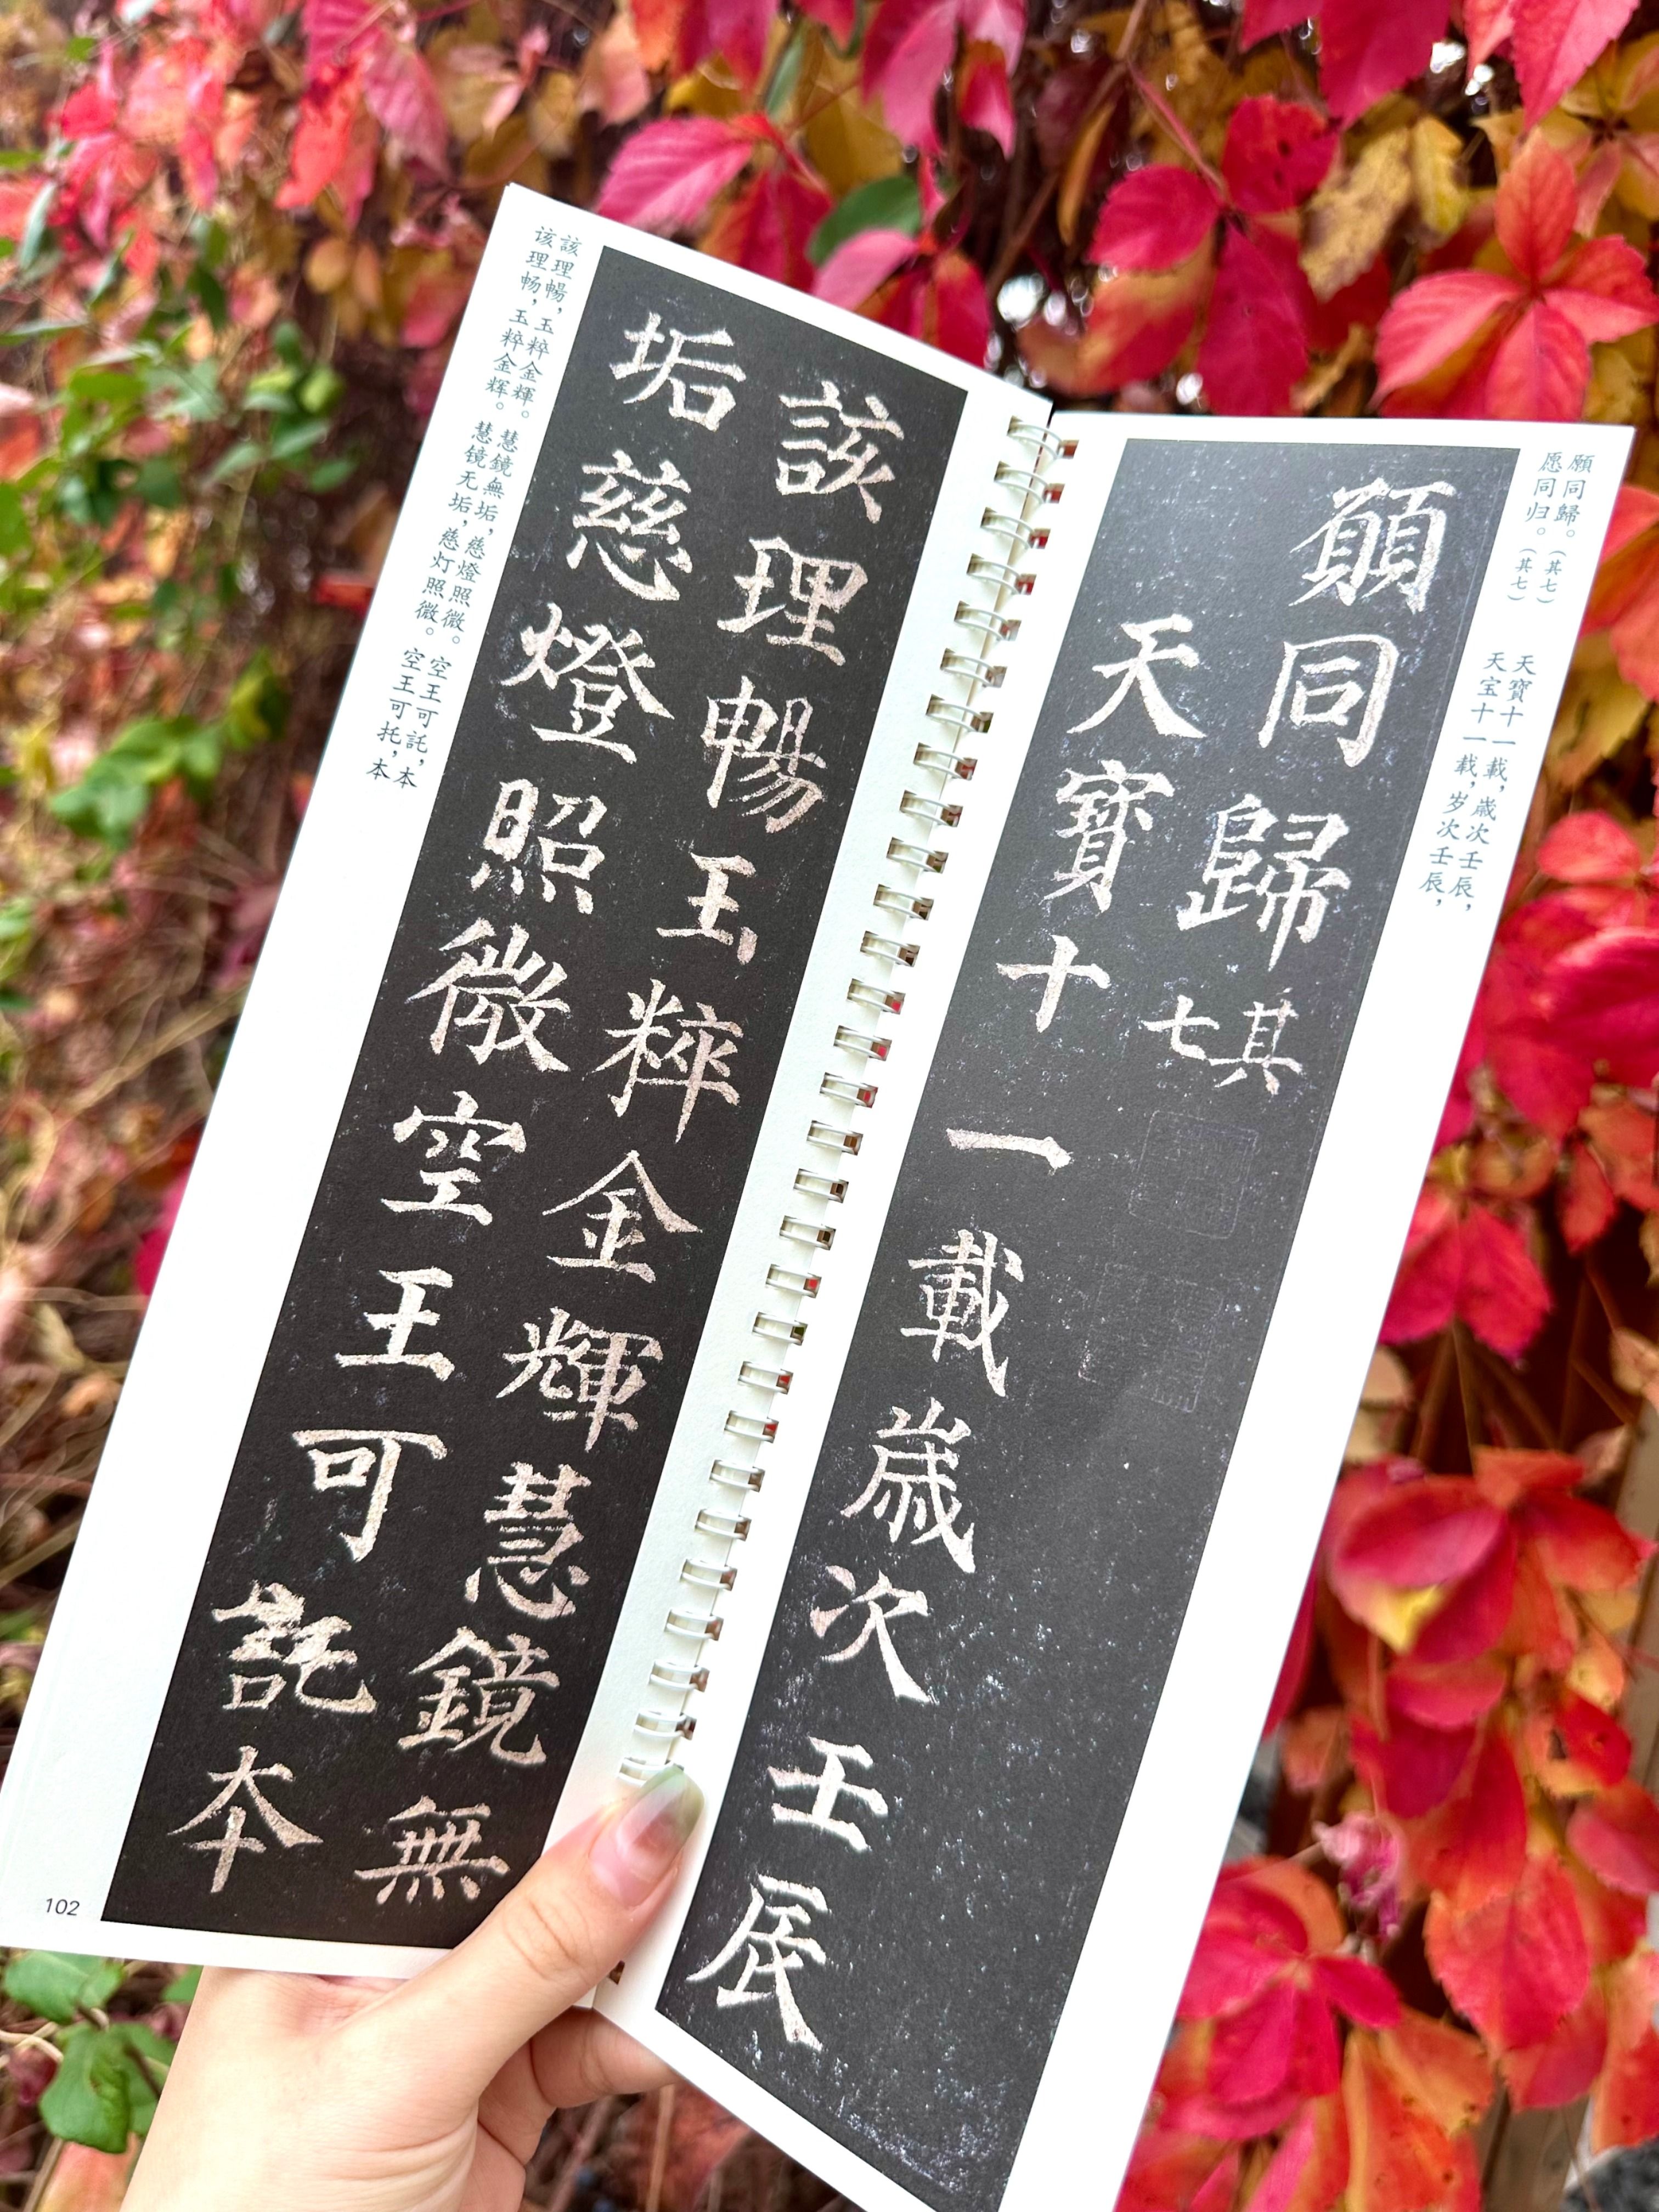 該理暢玉粹金輝慧鏡無
垢慈燈照微空王可託本
該理暢，玉粹金輝。慧鏡無垢，慈燈照微。空王可託，本
该理畅，玉粹金辉。慧镜无垢，慈灯照微。空王可托，本
102
願同歸其七
天寶十一載歲次壬辰
願同歸。（其七）天寶十一載，歲次壬辰，
愿同归。（其七）天宝十一载，岁次壬辰，